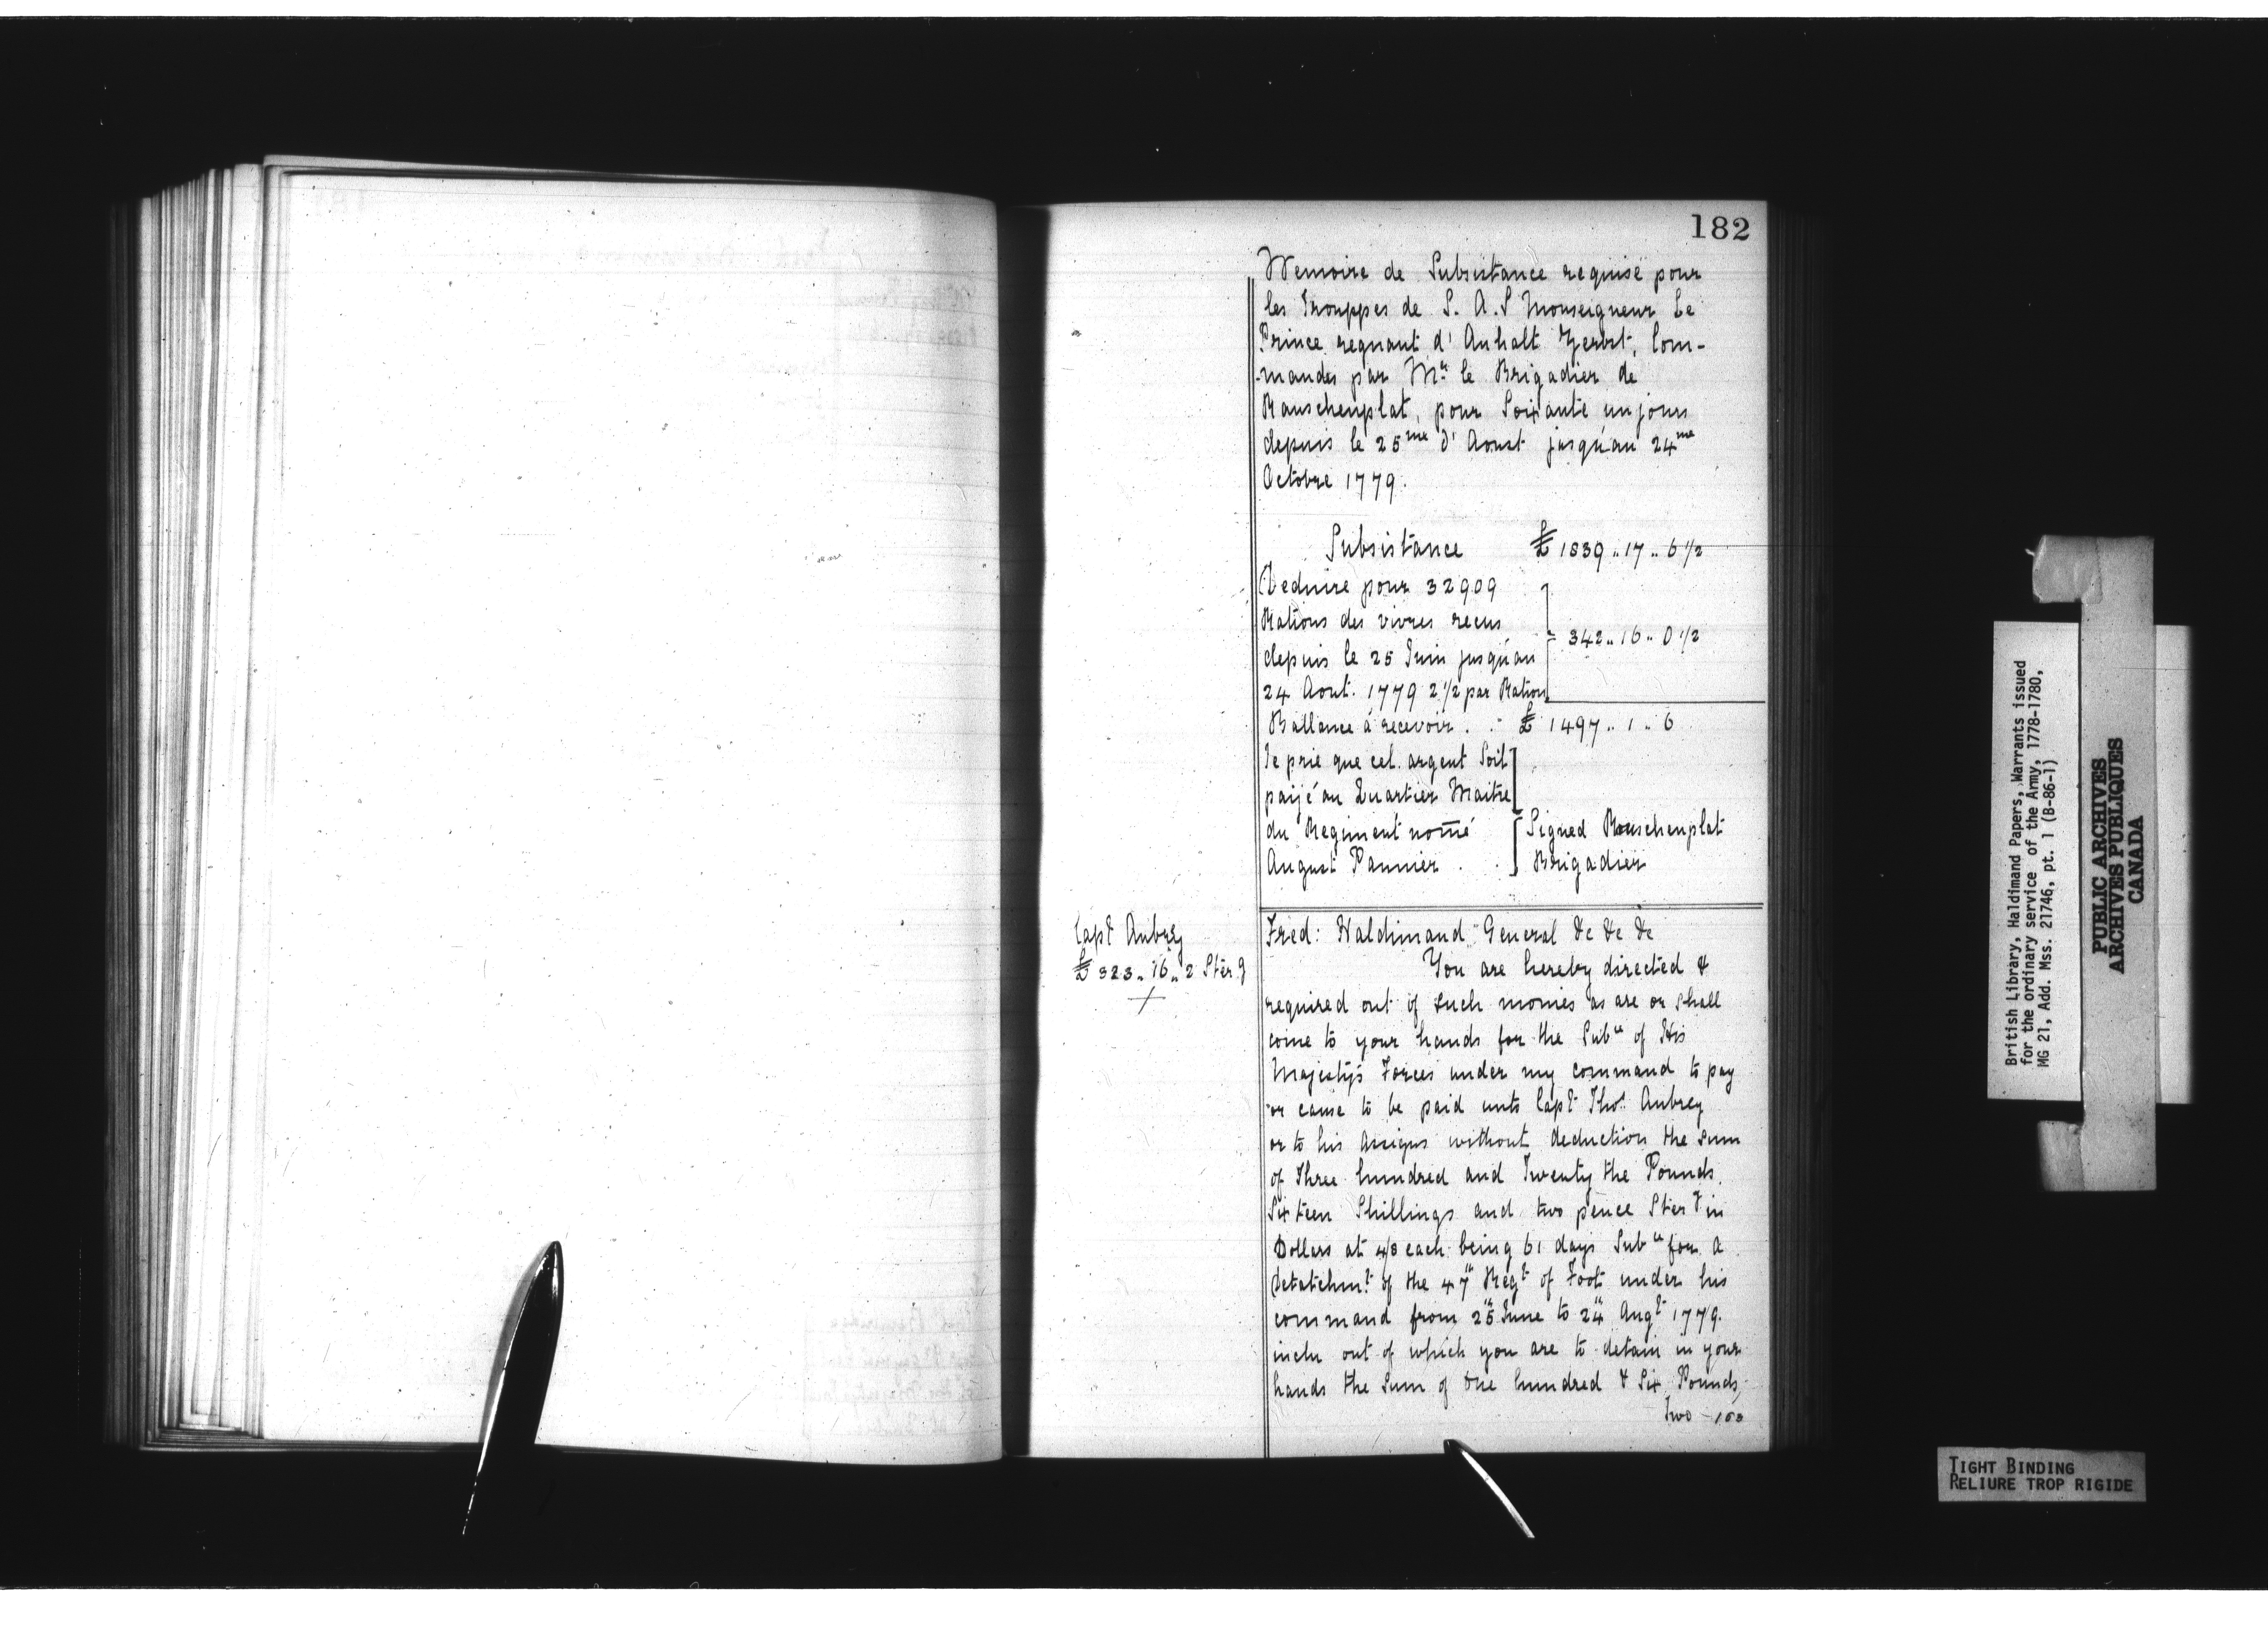 182
Memoire de Subsistance requise pour
les Trouppes de S. A. S Monseigneur Le
Prince regnant d' Anhalt Zerbst, Com-
-mandes par Mr. le Brigadier de
Rauschenplat, pour Soixante un jours
depuis le 25me d' Aoust jusqu'au 24me
Octobre 1779.
Subsistance £ 1839 .. 17 .. 6 1/2
Deduire pour 32909
Rations des vivres recus
depuis le 25 Juin jusqu'au
24 Aout. 1779 2 1/2 par Ration
342 .. 16 .. 0 1/2
Ballance á recevoir . . £ 1497 .. 1 .. 6
Je prie que cet argent Soit
paijé au Quartier Maitre
du Regiment nomé
August Pannier . .
Signed Rauschenplat
Brigadier
Capt Aubrey
£ 323 .. 16 .. 2 Ster.g
Fred: Haldimand General &c &c &c
You are hereby directed &
required out of such monies as are or shall
come to your hands for the Subce of His
Majesty's Forces under my command to pay
or cause to be paid unto Capt Thos. Aubrey
or to his Assigns without deduction the sum
of Three hundred and Twenty the Pounds
Sixteen Shillings and two pence Sterg in
Dollars at 4/8 each being 61 days Subce for a
detatchmt. of the 47th Regt of Foot under his
command from 25th June to 24th Augt 1779.
inclu out of which you are to detain in your
hands the Sum of One hundred & Six Pounds,
Two 183
British Library, Haldimand Papers, Warrants issued
for the ordinary service of the Army, 1778-1780,
MG 21, Add. Mss. 21746, pt. 1 (B-86-1)
PUBLIC ARCHIVES
ARCHIVES PUBLIQUES
CANADA
TIGHT BINDING
RELIURE TROP RIGIDE